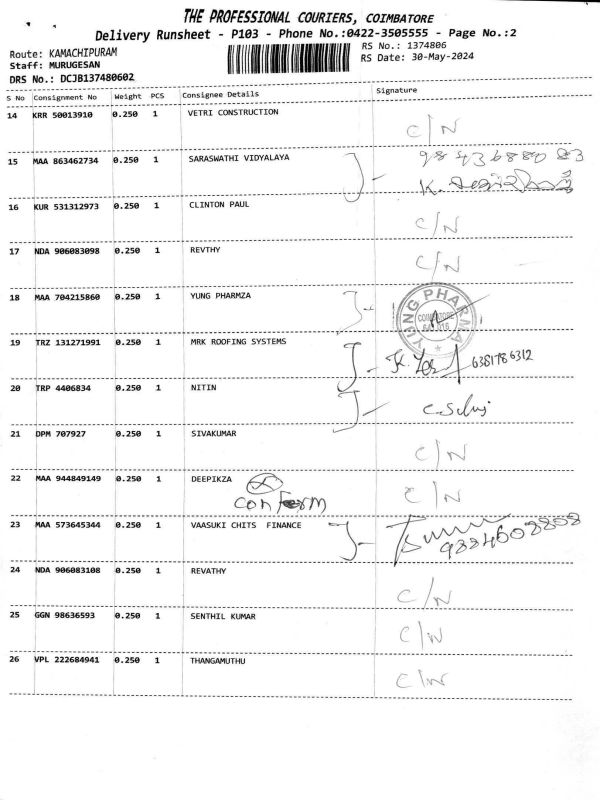 THE PROFESSIONAL COURIERS, COIMBATORE
Delivery Runsheet - P103 - Phone No.:0422-3505555 - Page No.:2
Route: KAMACHIPURAM
RS No.: 1374806
Staff: MURUGESAN
RS Date: 30-May-2024
DRS No.: DCJB137480602
S No Consignment No Weight PCS Consignee Details Signature
14 KRR 50013910 0.250 1 VETRI CONSTRUCTION C/N
15 MAA 863462734 0.250 1 SARASWATHI VIDYALAYA
16 KUR 531312973 0.250 1 CLINTON PAUL C/N
17 NDA 906083098 0.250 1 REVTHY C/N
18 MAA 704215860 0.250 1 YUNG PHARMZA
YUNG PHARMA
19 TRZ 131271991 0.250 1 MRK ROOFING SYSTEMS 6381786312
20 TRP 4406834 0.250 1 NITIN
21 DPM 707927 0.250 1 SIVAKUMAR C/N
22 MAA 944849149 0.250 1 DEEPIKZA C/N
conform
23 MAA 573645344 0.250 1 VAASUKI CHITS FINANCE
24 NDA 906083108 0.250 1 REVATHY C/N
25 GGN 98636593 0.250 1 SENTHIL KUMAR C/N
26 VPL 222684941 0.250 1 THANGAMUTHU C/N